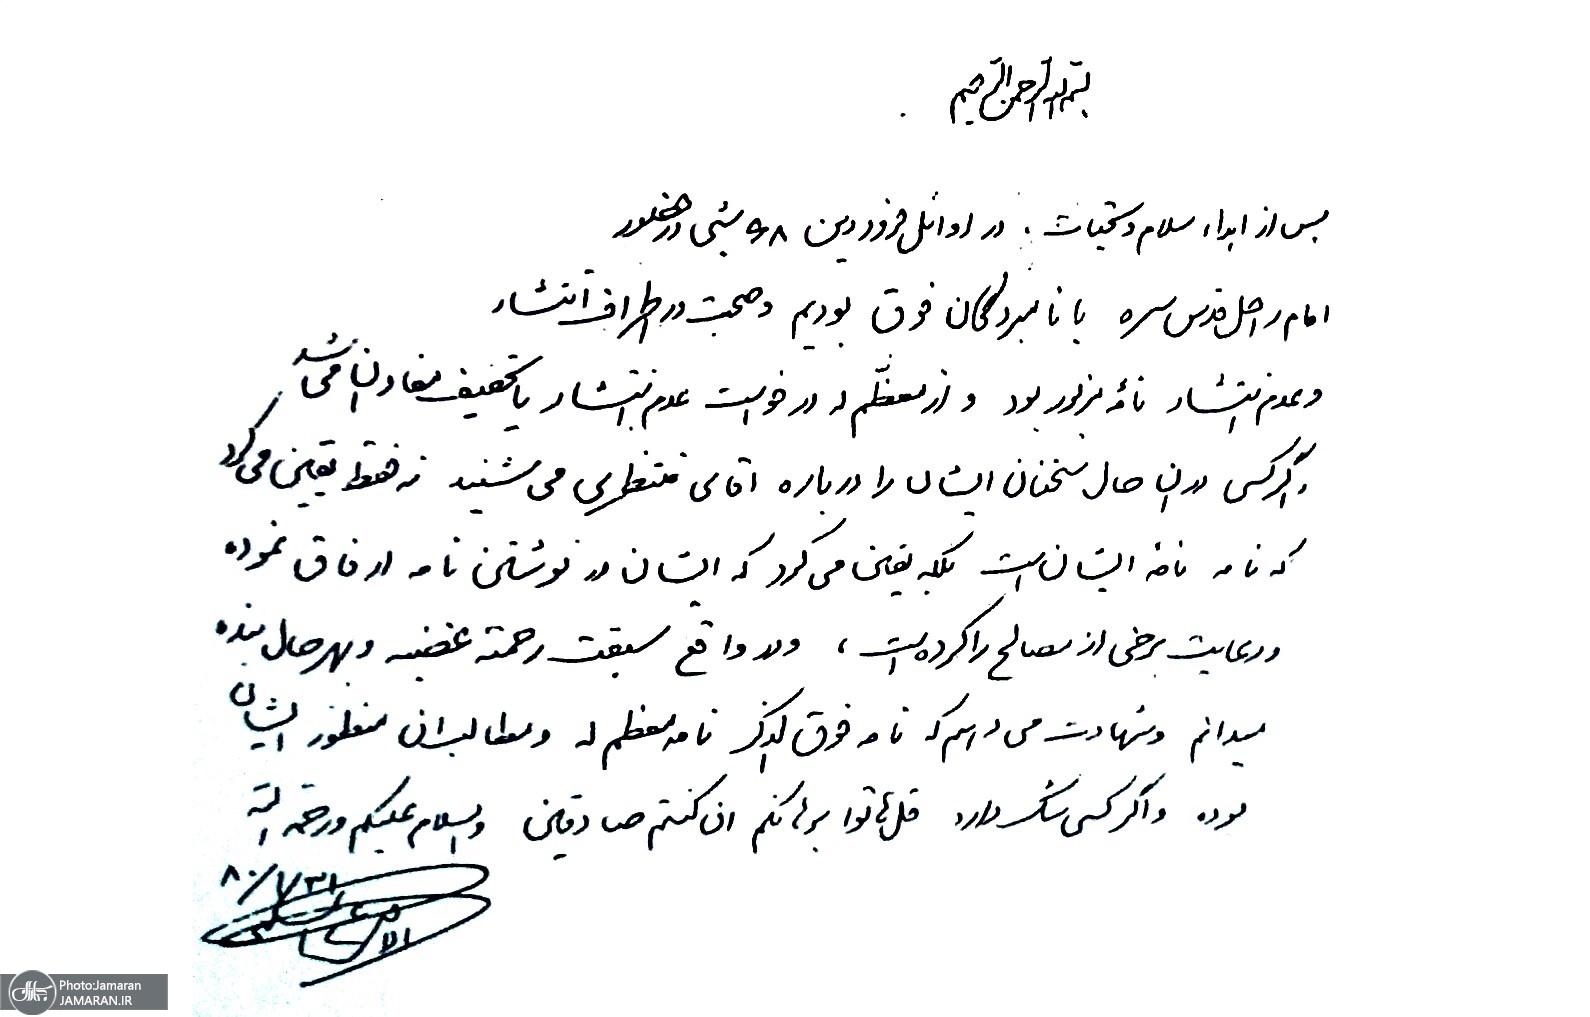 بسم الله الرحمن الرحیم
پس از اهداء سلام و تحیات، در اوائل فروردین ۶۸ شبی در حضور
امام راحل قدس سره با نامبردگان فوق بودیم و صحبت در اطراف انتشار
و عدم انتشار نامۀ مزبور بود و از معظّم له درخواست عدم انتشار یا تخفیف مفاد آن می شد
و اگر کسی در آن حال سخنان ایشان را درباره آقای منتظری می شنید نه فقط یقین می کرد
که نامه نامۀ ایشان است بلکه یقین می کرد که ایشان در نوشتن نامه ارفاق نموده
و رعایت برخی از مصالح را کرده است، و در واقع سبقت رحمته غضبه و بهر حال بنده
میدانم و شهادت می دهم که نامه فوق الذکر نامه معظم له و مطالب آن منظور ایشان
بوده و اگر کسی شک دارد قل هاتوا برهانکم ان کنتم صادقین والسلام علیکم و رحمة الله
۸۰/۱/۳۱
Photo:Jamaran
JAMARAN.IR